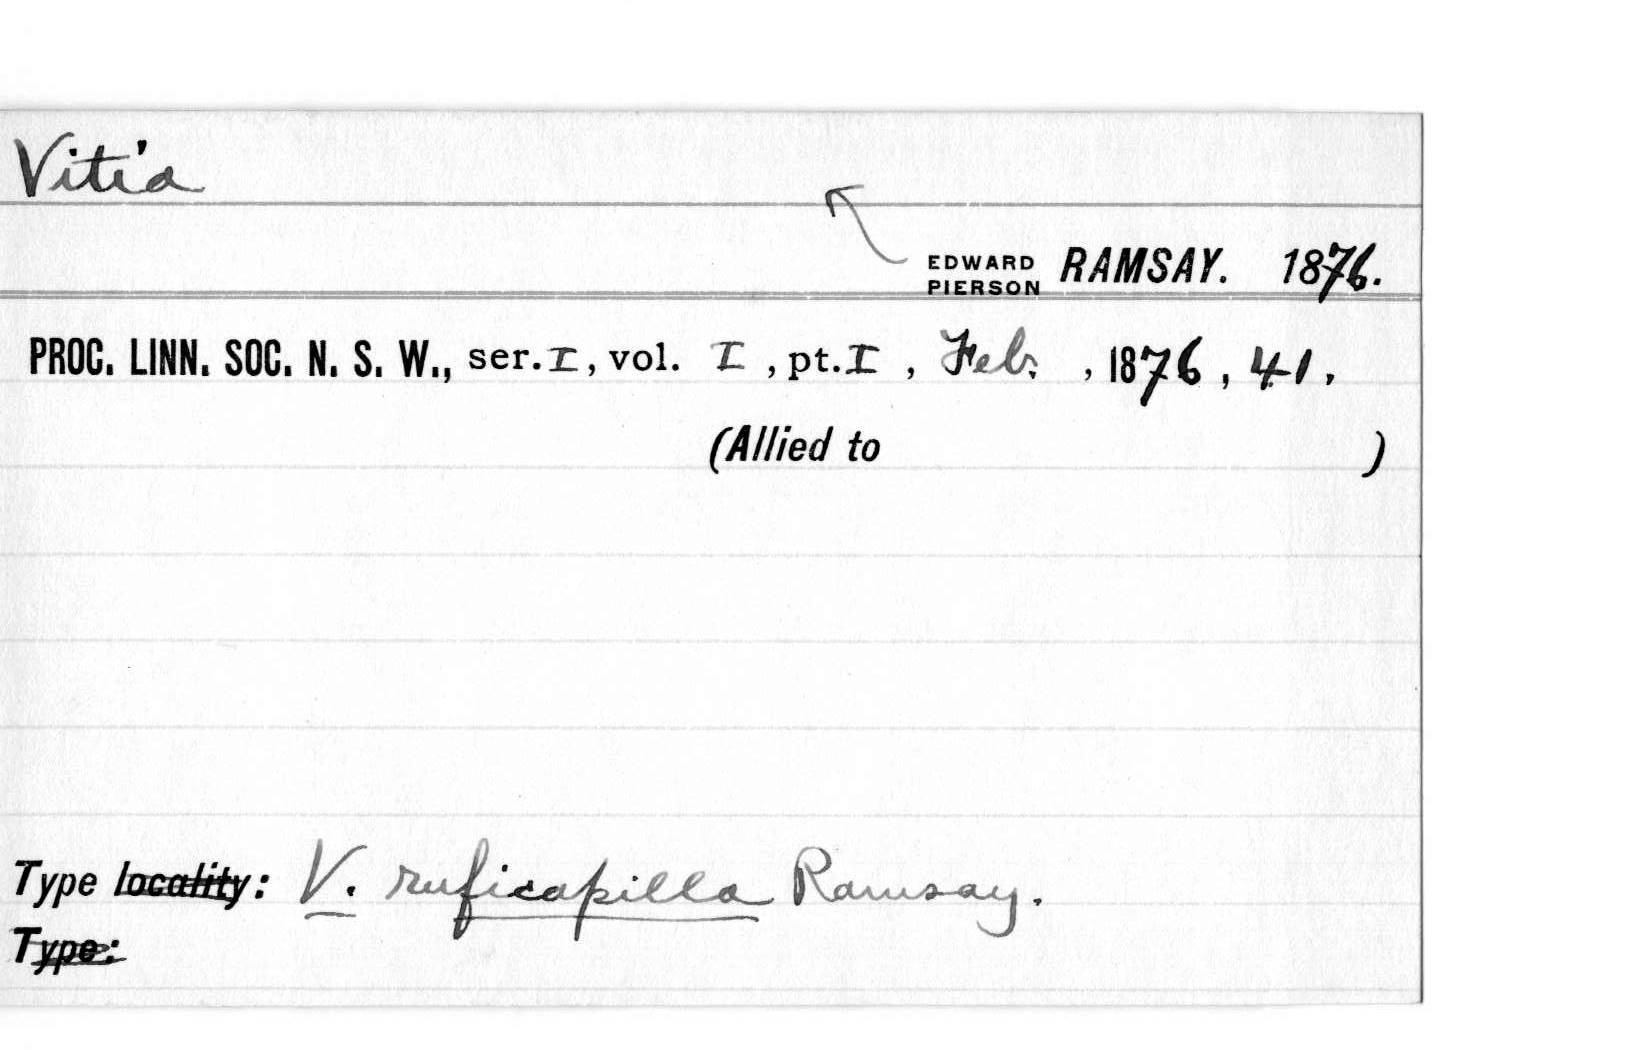 Vitia
EDWARD PIERSON RAMSAY. 1876.
PROC. LINN. SOC. N. S. W., ser. I, vol. I, pt. I, Feb., 1876, 41.
(Allied to )
Type locality: V. ruficapilla Ramsay.
Type: